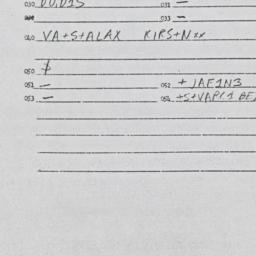 030 DU,D1S 031 —
033 —
040 VA+S+ALAX KIRS+N**
050 $
051 — 052 + JAE1N3
053 — 054 +S+VAPC1 BE